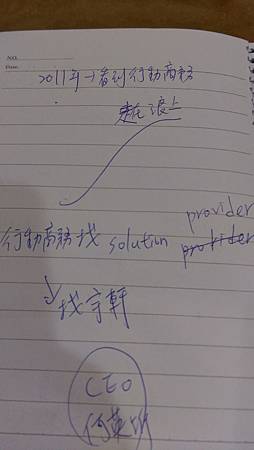 NO.
Date.
2011年→看到行動商務
走在浪上
provider
行動商務找 solution provider
↓找宇軒
CEO